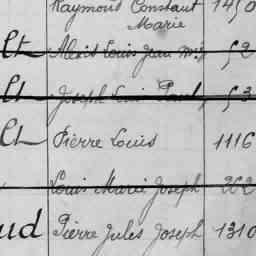 Raymond Constant 1450
Marie
Ct Alexis Louis Jean Mie 52
Ct Joseph Paul 53
Ct Pierre Louis 1116
Louis Marie Joseph 262
ud Pierre Jules Joseph 1310